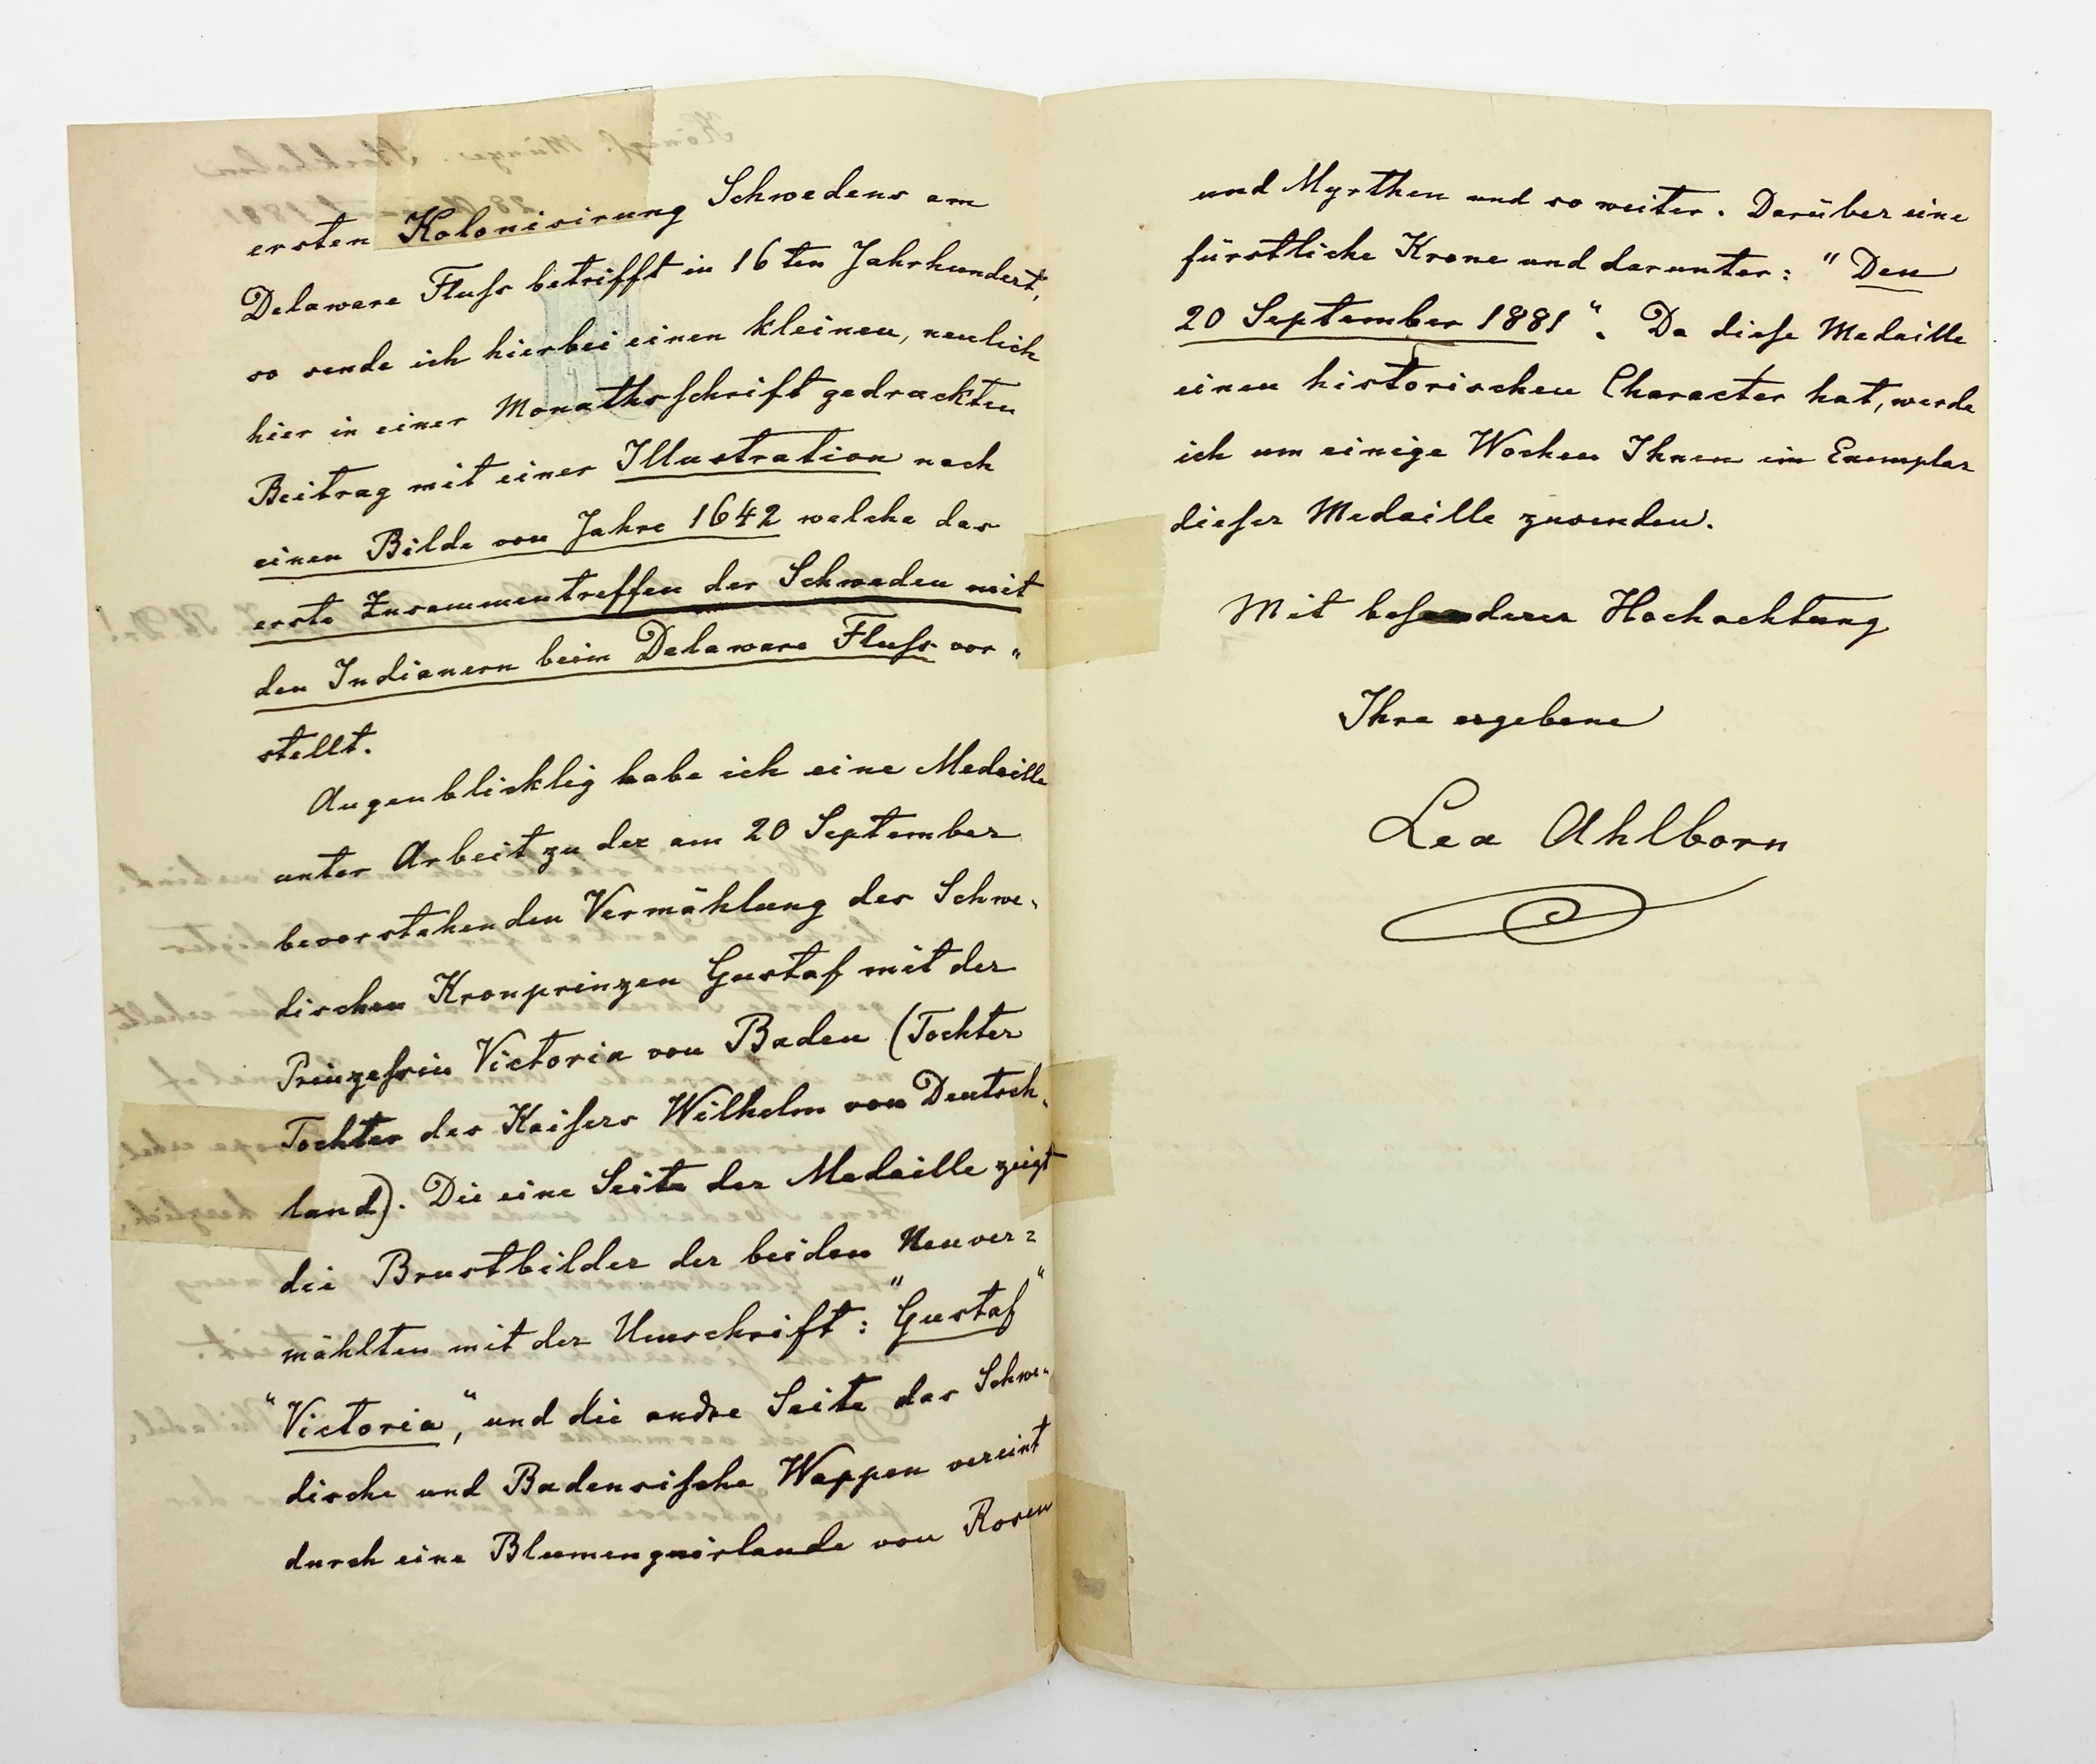 ersten Kolonisirung Schwedens am
Delaware Fluss betrifft in 16ten Jahrhundert,
so sende ich hierbei einen kleinen, neulich
hier in einer Monathsschrift gedruckten
Beitrag mit einer Illustration nach
einen Bilde von Jahre 1642 welche das
erste Zusammentreffen der Schweden mit
den Indianern beim Delaware Fluss vor„
stellt.
Augenblicklig habe ich eine Medaille
unter Arbeit zu der am 20 September
bevorstehenden Vermählung des Schwe„
dischen Kronprinzen Gustaf mit der
Prinzessin Victoria von Baden (Tochter
Tochter des Kaisers Wilhelm von Deutsch„
land). Die eine Seite der Medaille zeigt
die Brustbilder der beiden Neuver=
mählten mit der Umschrift: "Gustaf"
"Victoria," und die andre Seite das Schwe„
dische und Badensische Wappen vereint
durch eine Blumenguirlande von Rosen
und Myrthen und so weiter. Darüber eine
fürstliche Krone und darunter: "Den
20 September 1881". Da diese Medaille
einen historischen Character hat, werde
ich um einige Wochen Ihnen ein Exemplar
dieser Medaille zusenden.
Mit besonderer Hochachtung
Ihre ergebene
Lea Ahlborn